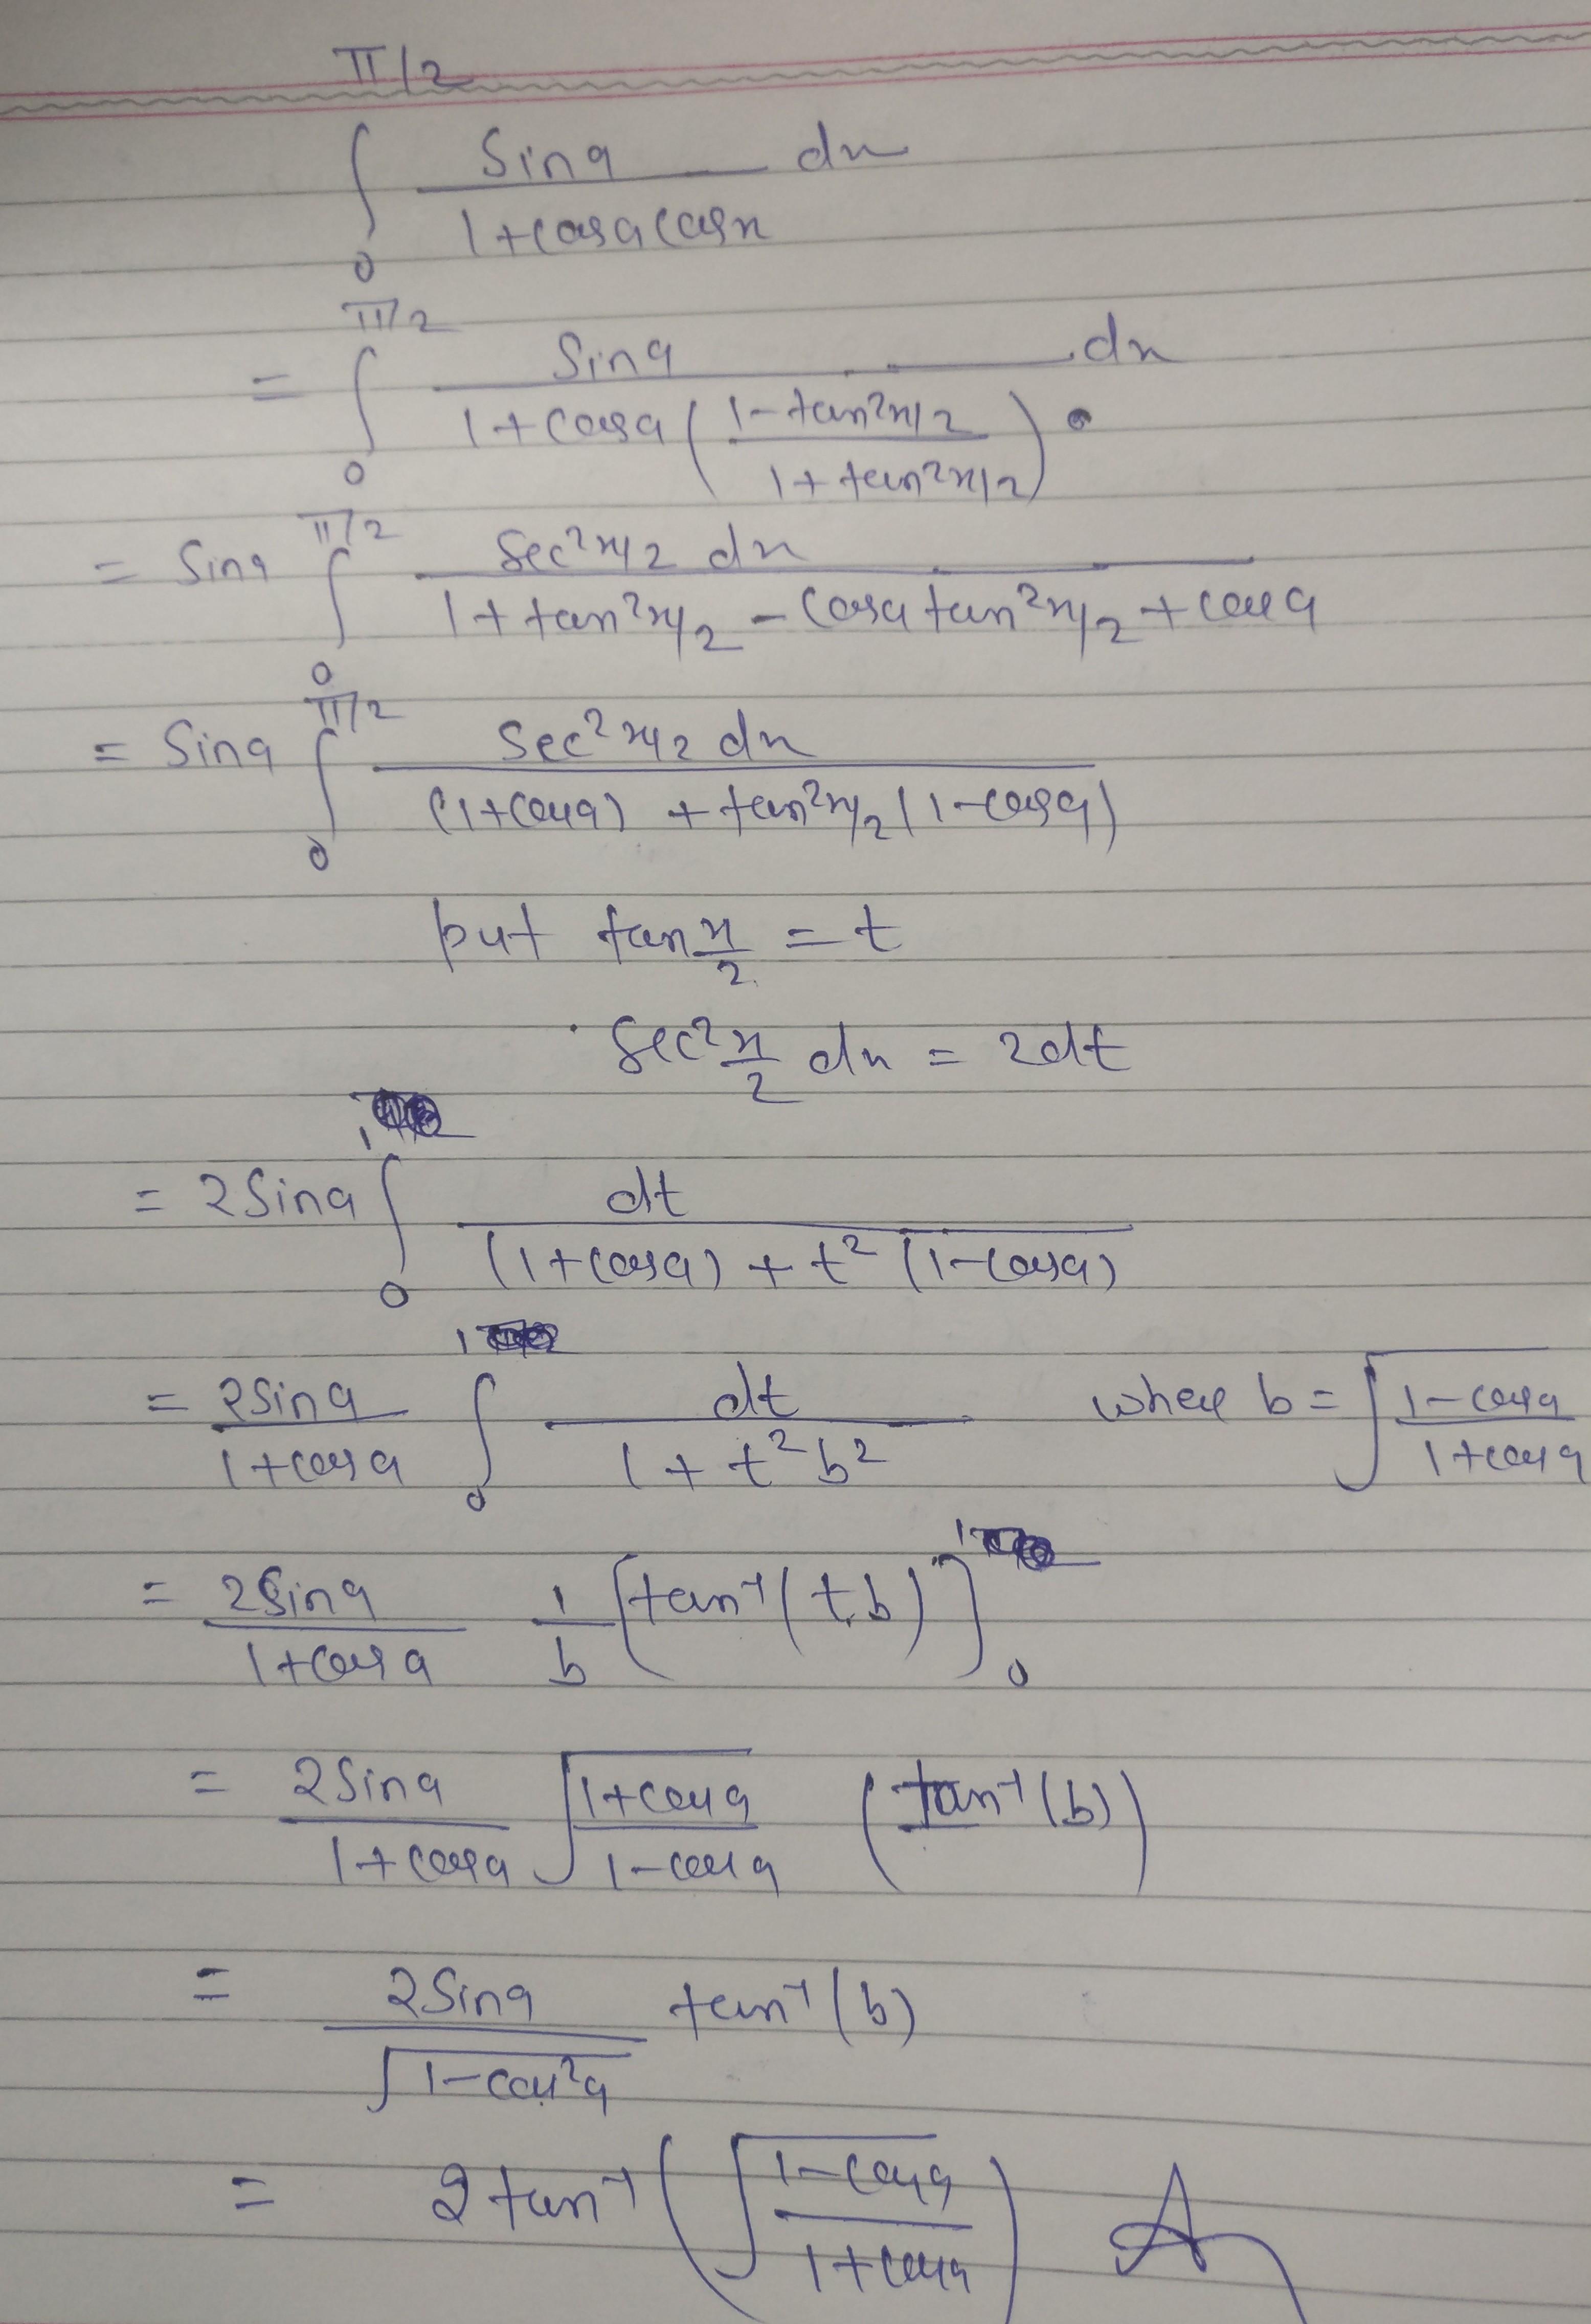 π/2
∫ Sina / 1+cosa cosx dx
0
π/2
= ∫ Sina / 1+cosa (1-tan²x/2 / 1+tan²x/2) dx
0
π/2
= Sina ∫ Sec²x/2 dx / 1+tan²x/2 - cosa tan²x/2 + cosa
0
π/2
= Sina ∫ Sec²x/2 dx / (1+cosa) + tan²x/2 (1-cosa)
0
put tan x/2 = t
Sec² x/2 dx = 2dt
1
= 2Sina ∫ dt / (1+cosa) + t² (1-cosa)
0
1
= 2Sina / 1+cosa ∫ dt / 1+t²b² where b = √1-cosa / 1+cosa
0
= 2Sina / 1+cosa 1/b [tan⁻¹(t.b)]₀¹
= 2Sina / 1+cosa √1+cosa / 1-cosa (tan⁻¹(b))
= 2Sina / √1-cos²a tan⁻¹(b)
= 2tan⁻¹(√1-cosa / 1+cosa) A